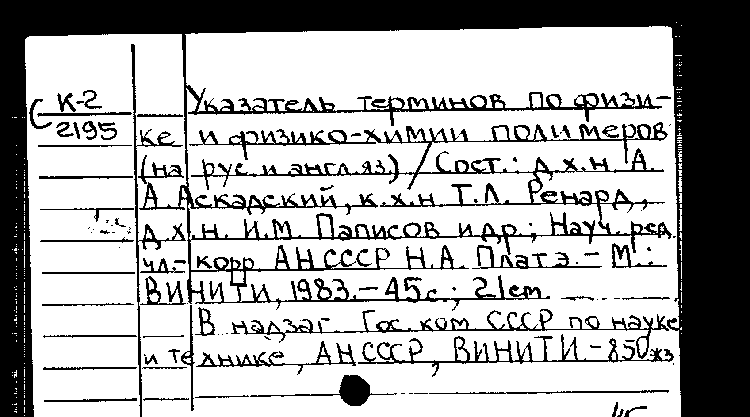 К-2
2195
Указатель терминов по физи-
ке и физико-химии полимеров
(на рус. и англ. яз.) / Сост.: д.х.н. А.
А. Аскадский, к.х.н. Т.Л. Ренард,
д.х.н. И.М. Паписов и др.; Науч. ред.
чл.-корр. АН СССР Н.А. Платэ. – М.:
ВИНИТИ, 1983. – 45 с.; 21 cm.
В надзаг. Гос. ком СССР по науке
и технике, АН СССР, ВИНИТИ – 850 экз